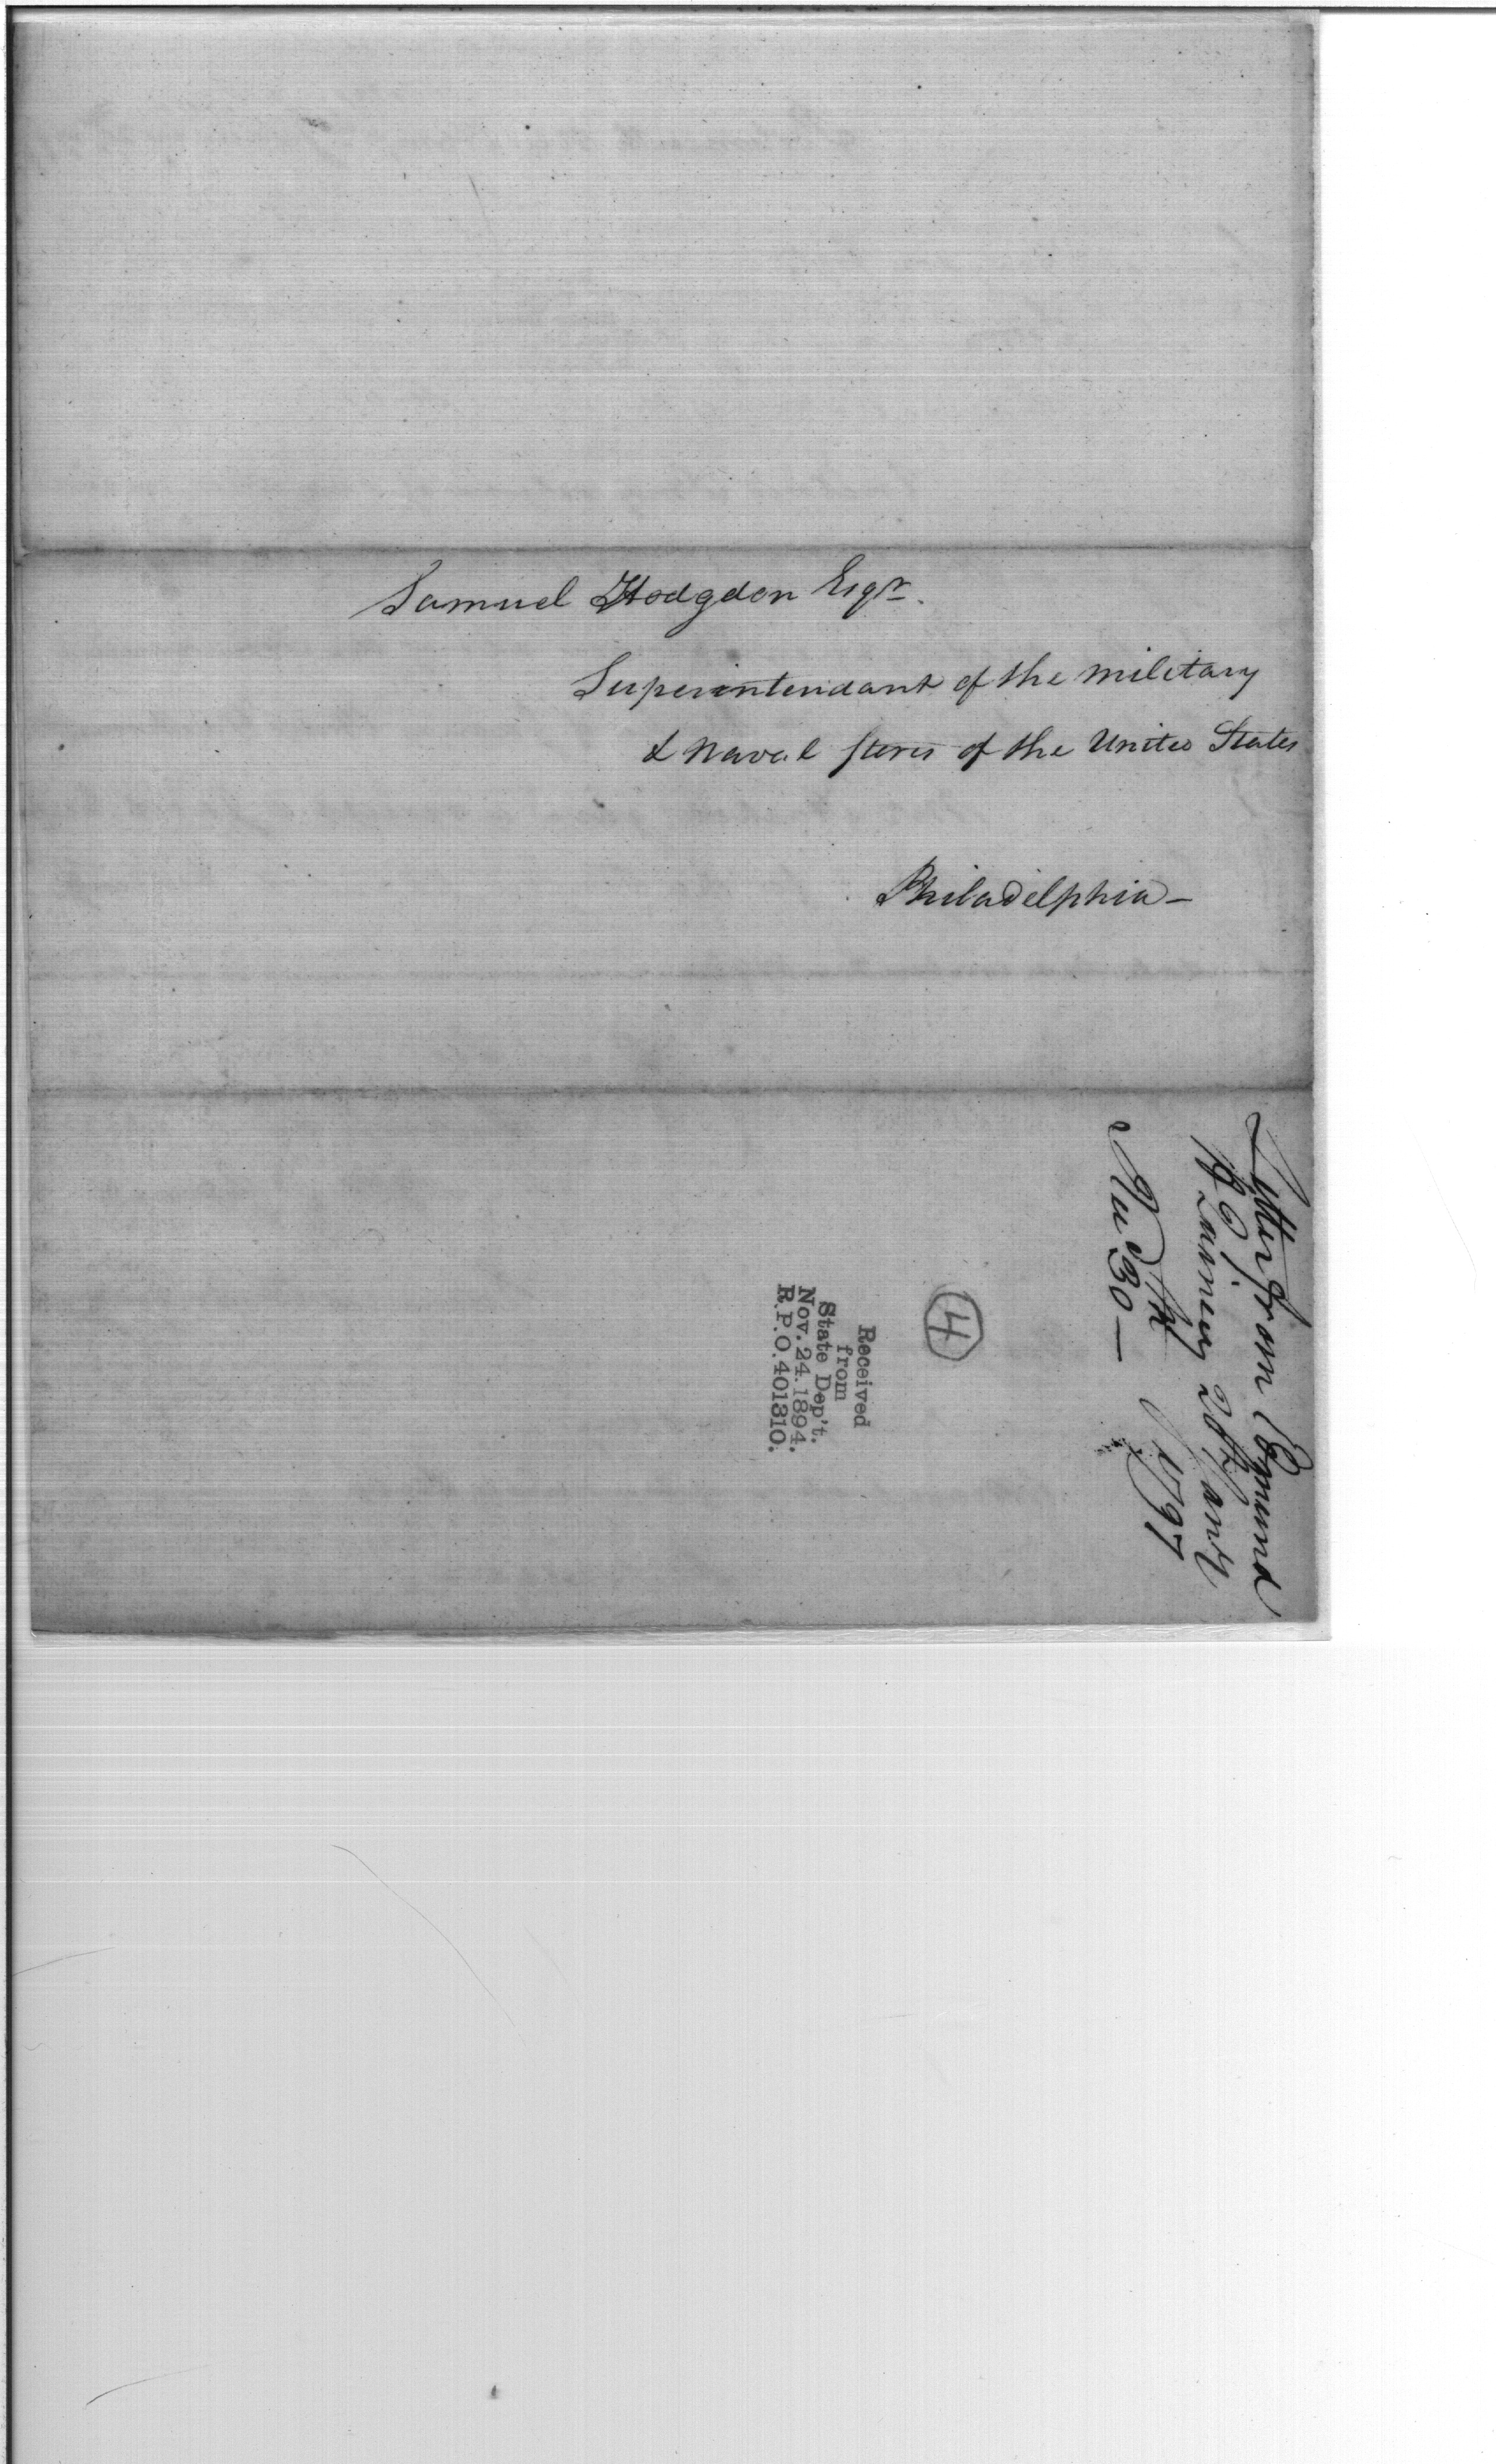 Samuel Hodgdon Esqr.
Superintendant of the military
& Naval Stores of the United States
Philadelphia—
Letter from Edmund
H. Taylor 28th Jany
1797
30—
4
Received
from
State Dep't.
Nov. 24. 1894.
R.P.O. 401310.